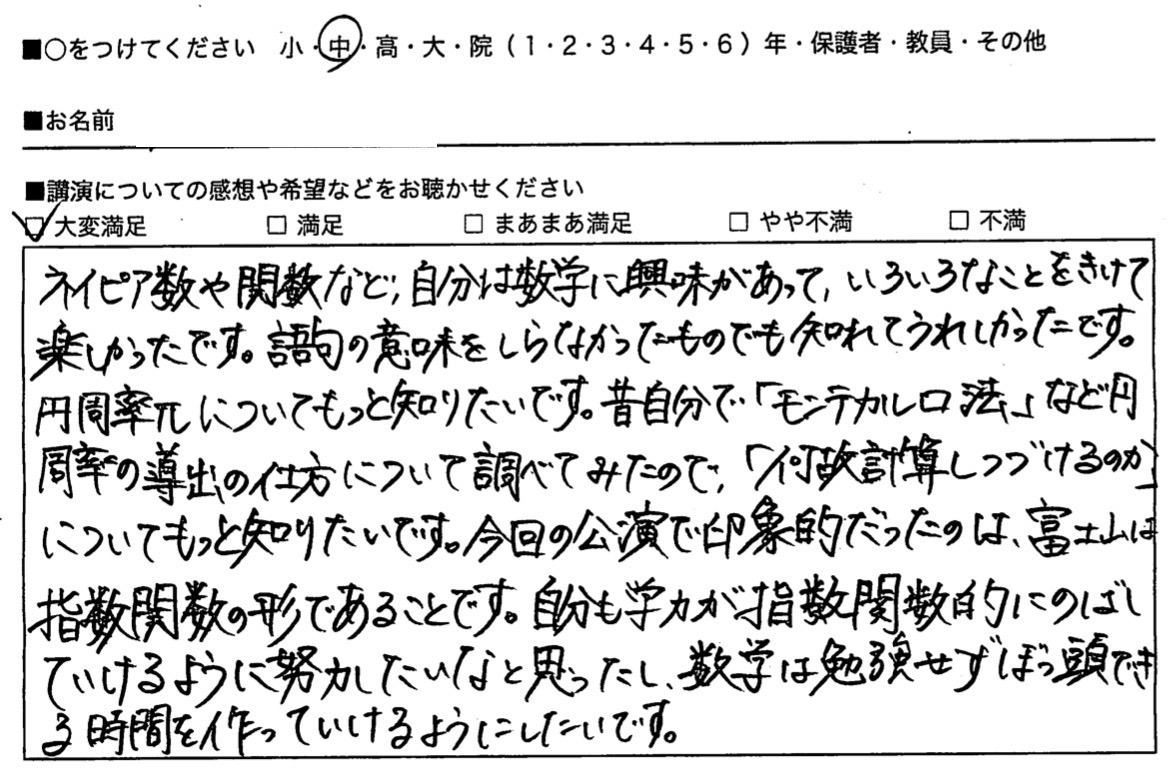 ■○をつけてください 小・中・高・大・院(1・2・3・4・5・6)年・保護者・教員・その他
■お名前
■講演についての感想や希望などをお聴かせください
□大変満足 □満足 □まあまあ満足 □やや不満 □不満
ネイピア数や関数など,自分は数学に興味があって,いろいろなことをきけて
楽しかったです。語句の意味をしらなかったものでも知れてうれしかったです。
円周率πについてもっと知りたいです。昔自分で「モンテカルロ法」など円
周率の導出の仕方について調べてみたので,「何故計算しつづけるのか」
についてもっと知りたいです。今回の公演で印象的だったのは、富士山は
指数関数の形であることです。自分も学力が指数関数的にのばし
ていけるように努力したいなと思ったし、数学は勉強せずぼっ頭でき
る時間を作っていけるようにしたいです。